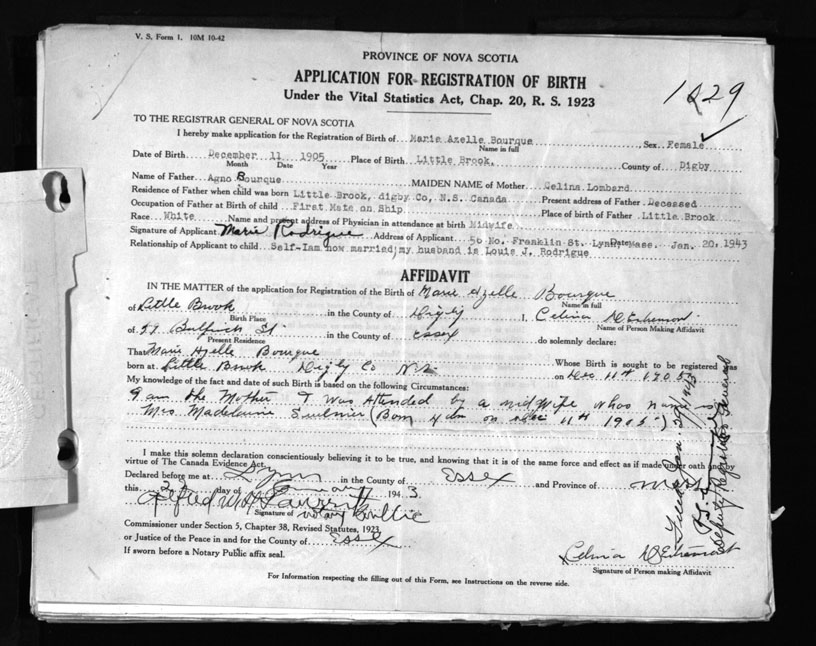 V. S. Form 1. 10M 10-42
PROVINCE OF NOVA SCOTIA
APPLICATION FOR REGISTRATION OF BIRTH
Under the Vital Statistics Act, Chap. 20, R. S. 1923
1829
TO THE REGISTRAR GENERAL OF NOVA SCOTIA
I hereby make application for the Registration of Birth of Marie Azelle Bourque, Sex Female
Name in full
Date of Birth December 11 1905 Place of Birth Little Brook, County of Digby
Month Date Year
Name of Father Agno Bourque MAIDEN NAME of Mother Celina Lombard
Residence of Father when child was born Little Brook, digby Co, N.S. Canada Present address of Father Deceased
Occupation of Father at Birth of child First Mate on Ship Place of birth of Father Little Brook
Race White Name and present address of Physician in attendance at birth Midwife
Signature of Applicant Marie Rodrigue Address of Applicant 50 No. Franklin St. Lynn Mass. Date Jan. 20, 1943
Relationship of Applicant to child Self-Iam now married; my husband is Louis J. Rodrigue
AFFIDAVIT
IN THE MATTER of the application for Registration of the Birth of Marie Azelle Bourque
Name in full
of Little Brook in the County of Digby I, Celina D'Entremont
Birth Place Name of Person Making Affidavit
of 57 St. in the County of Essex do solemnly declare:
Present Residence
That Marie Azelle Bourque Whose Birth is sought to be registered was
born at Little Brook Digby Co N.S. on Dec 11th 1905
My knowledge of the fact and date of such Birth is based on the following Circumstances:
I am the Mother I was attended by a midwife whos name is
Mrs. Madelaine (Born on Dec 11th 1905)
I make this solemn declaration conscientiously believing it to be true, and knowing that it is of the same force and effect as if made under oath and by
virtue of The Canada Evidence Act.
Declared before me at Lynn in the County of Essex and Province of Mass
this day of January 1943.
Signature of Notary Public
Commissioner under Section 5, Chapter 38, Revised Statutes, 1923
or Justice of the Peace in and for the County of Essex
If sworn before a Notary Public affix seal.
Celina D'Entremont
Signature of Person making Affidavit
Deputy Registrar General
For Information respecting the filling out of this Form, see Instructions on the reverse side.